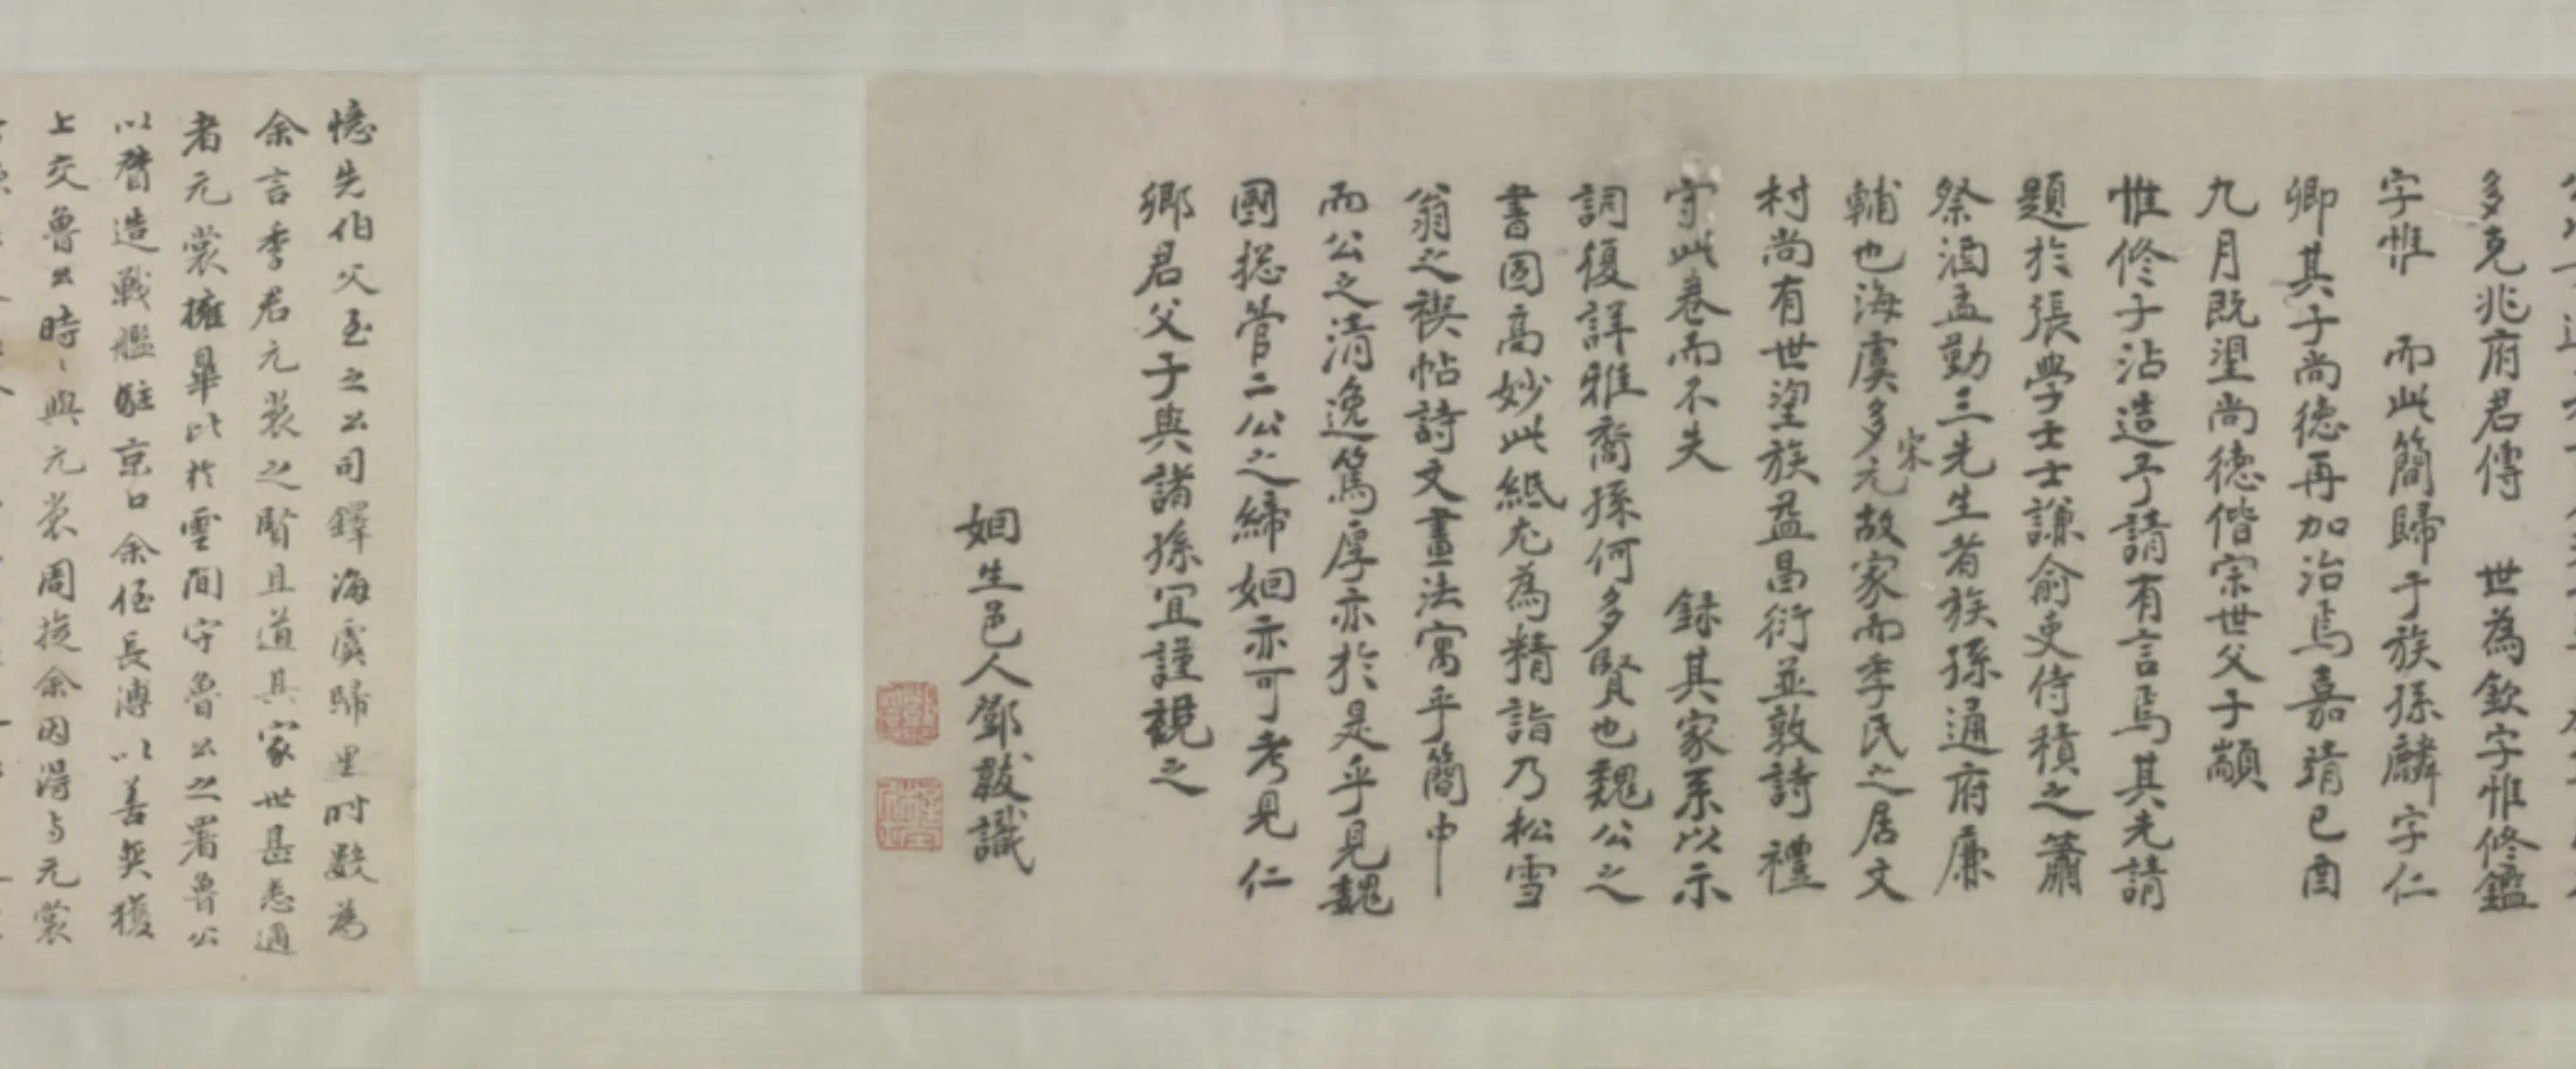 多克兆府君傳　世為欽字惟修鑑
字惟　而此簡歸于族孫麟字仁
卿其子尚德再加治焉嘉靖己酉
九月既望尚德偕宗世父子顓
惟修子沾造予請有言焉其先請
題於張學士士謙俞吏侍積之蕭
祭酒孟勤三先生者族孫通府廉
輔也海虞多宋元故家而季民之居文
村尚有世望族益昌衍並敦詩禮
守此卷而不失　錄其家系以示
詞復詳雅喬孫何多賢也魏公之
書固高妙此紙尤為精詣乃松雪
翁之禊帖詩文畫法寓乎簡中
而公之清逸篤厚亦於是乎見魏
國摠管二公之締姻亦可考見仁
卿君父子與諸孫宜謹視之
姻生邑人鄧韍識
憶先伯父至之公司鐸海虞歸里時數為
余言季君元裳之賢且道其家世甚悉適
者元裳擁臯比於雲間守魯公之署魯公
以督造戰艦駐京口余侄長溥以善契獲
上交魯公時時與元裳周旋余因得与元裳